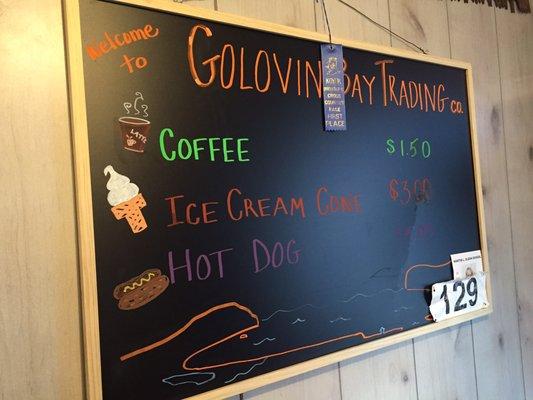 Welcome
to
GOLOVIN BAY TRADING CO.
LATTE
COFFEE $1.50
ICE CREAM CONE $3.00
HOT DOG
FIRST
PLACE
129